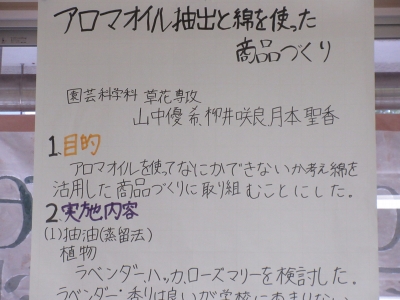 アロマオイル抽出と綿を使った
商品づくり
園芸科学科 草花専攻
山中優希、柳井咲良、月本聖香
1.目的
アロマオイルを使ってなにかできないか考え綿を
活用した商品づくりに取り組むことにした。
2.実施内容
(1)抽油(蒸留法)
植物
ラベンダー、ハッカ、ローズマリーを検討した。
ラベンダー:香りは良いが学校にあまりない